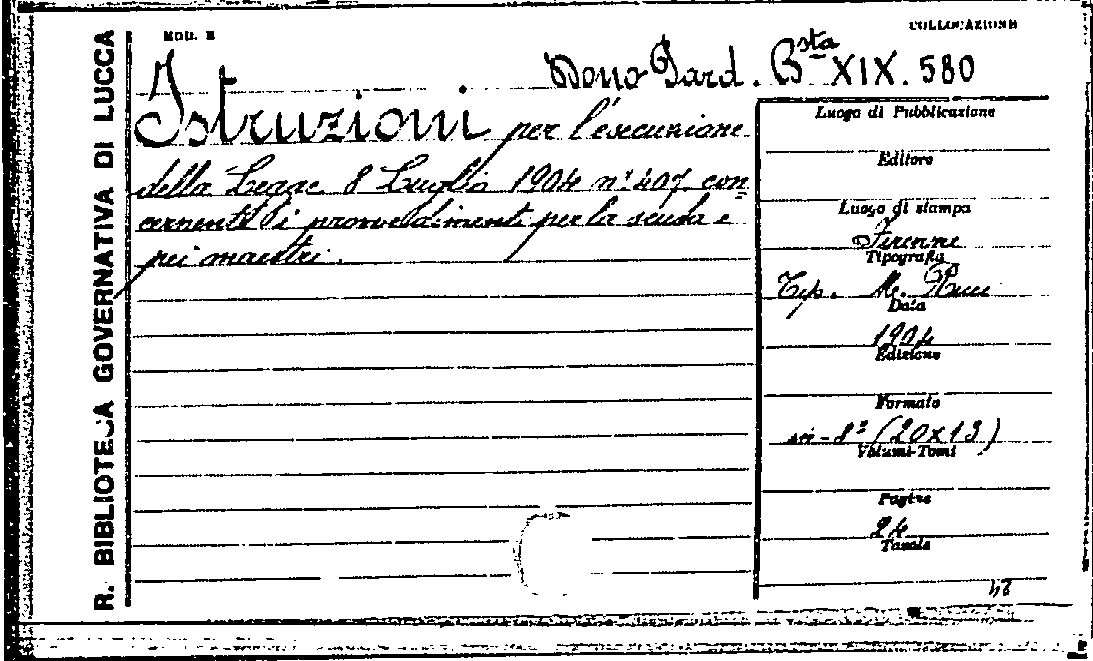 R. BIBLIOTECA GOVERNATIVA DI LUCCA
MOD. E
COLLOCAZIONE
Dono Pard. Bsta XIX. 580
Istruzioni per l'esecuzione
della Legge 8 Luglio 1904 n° 407 con
cernente i provvedimenti per la scuola e
pei maestri.
Luogo di Pubblicazione
Editore
Luogo di stampa
Firenze
Tipografia
Tip. M. Ricci
Data
1904
Edizione
Formato
in-8° (20x13)
Volumi-Tomi
Pagine
24
Tavole